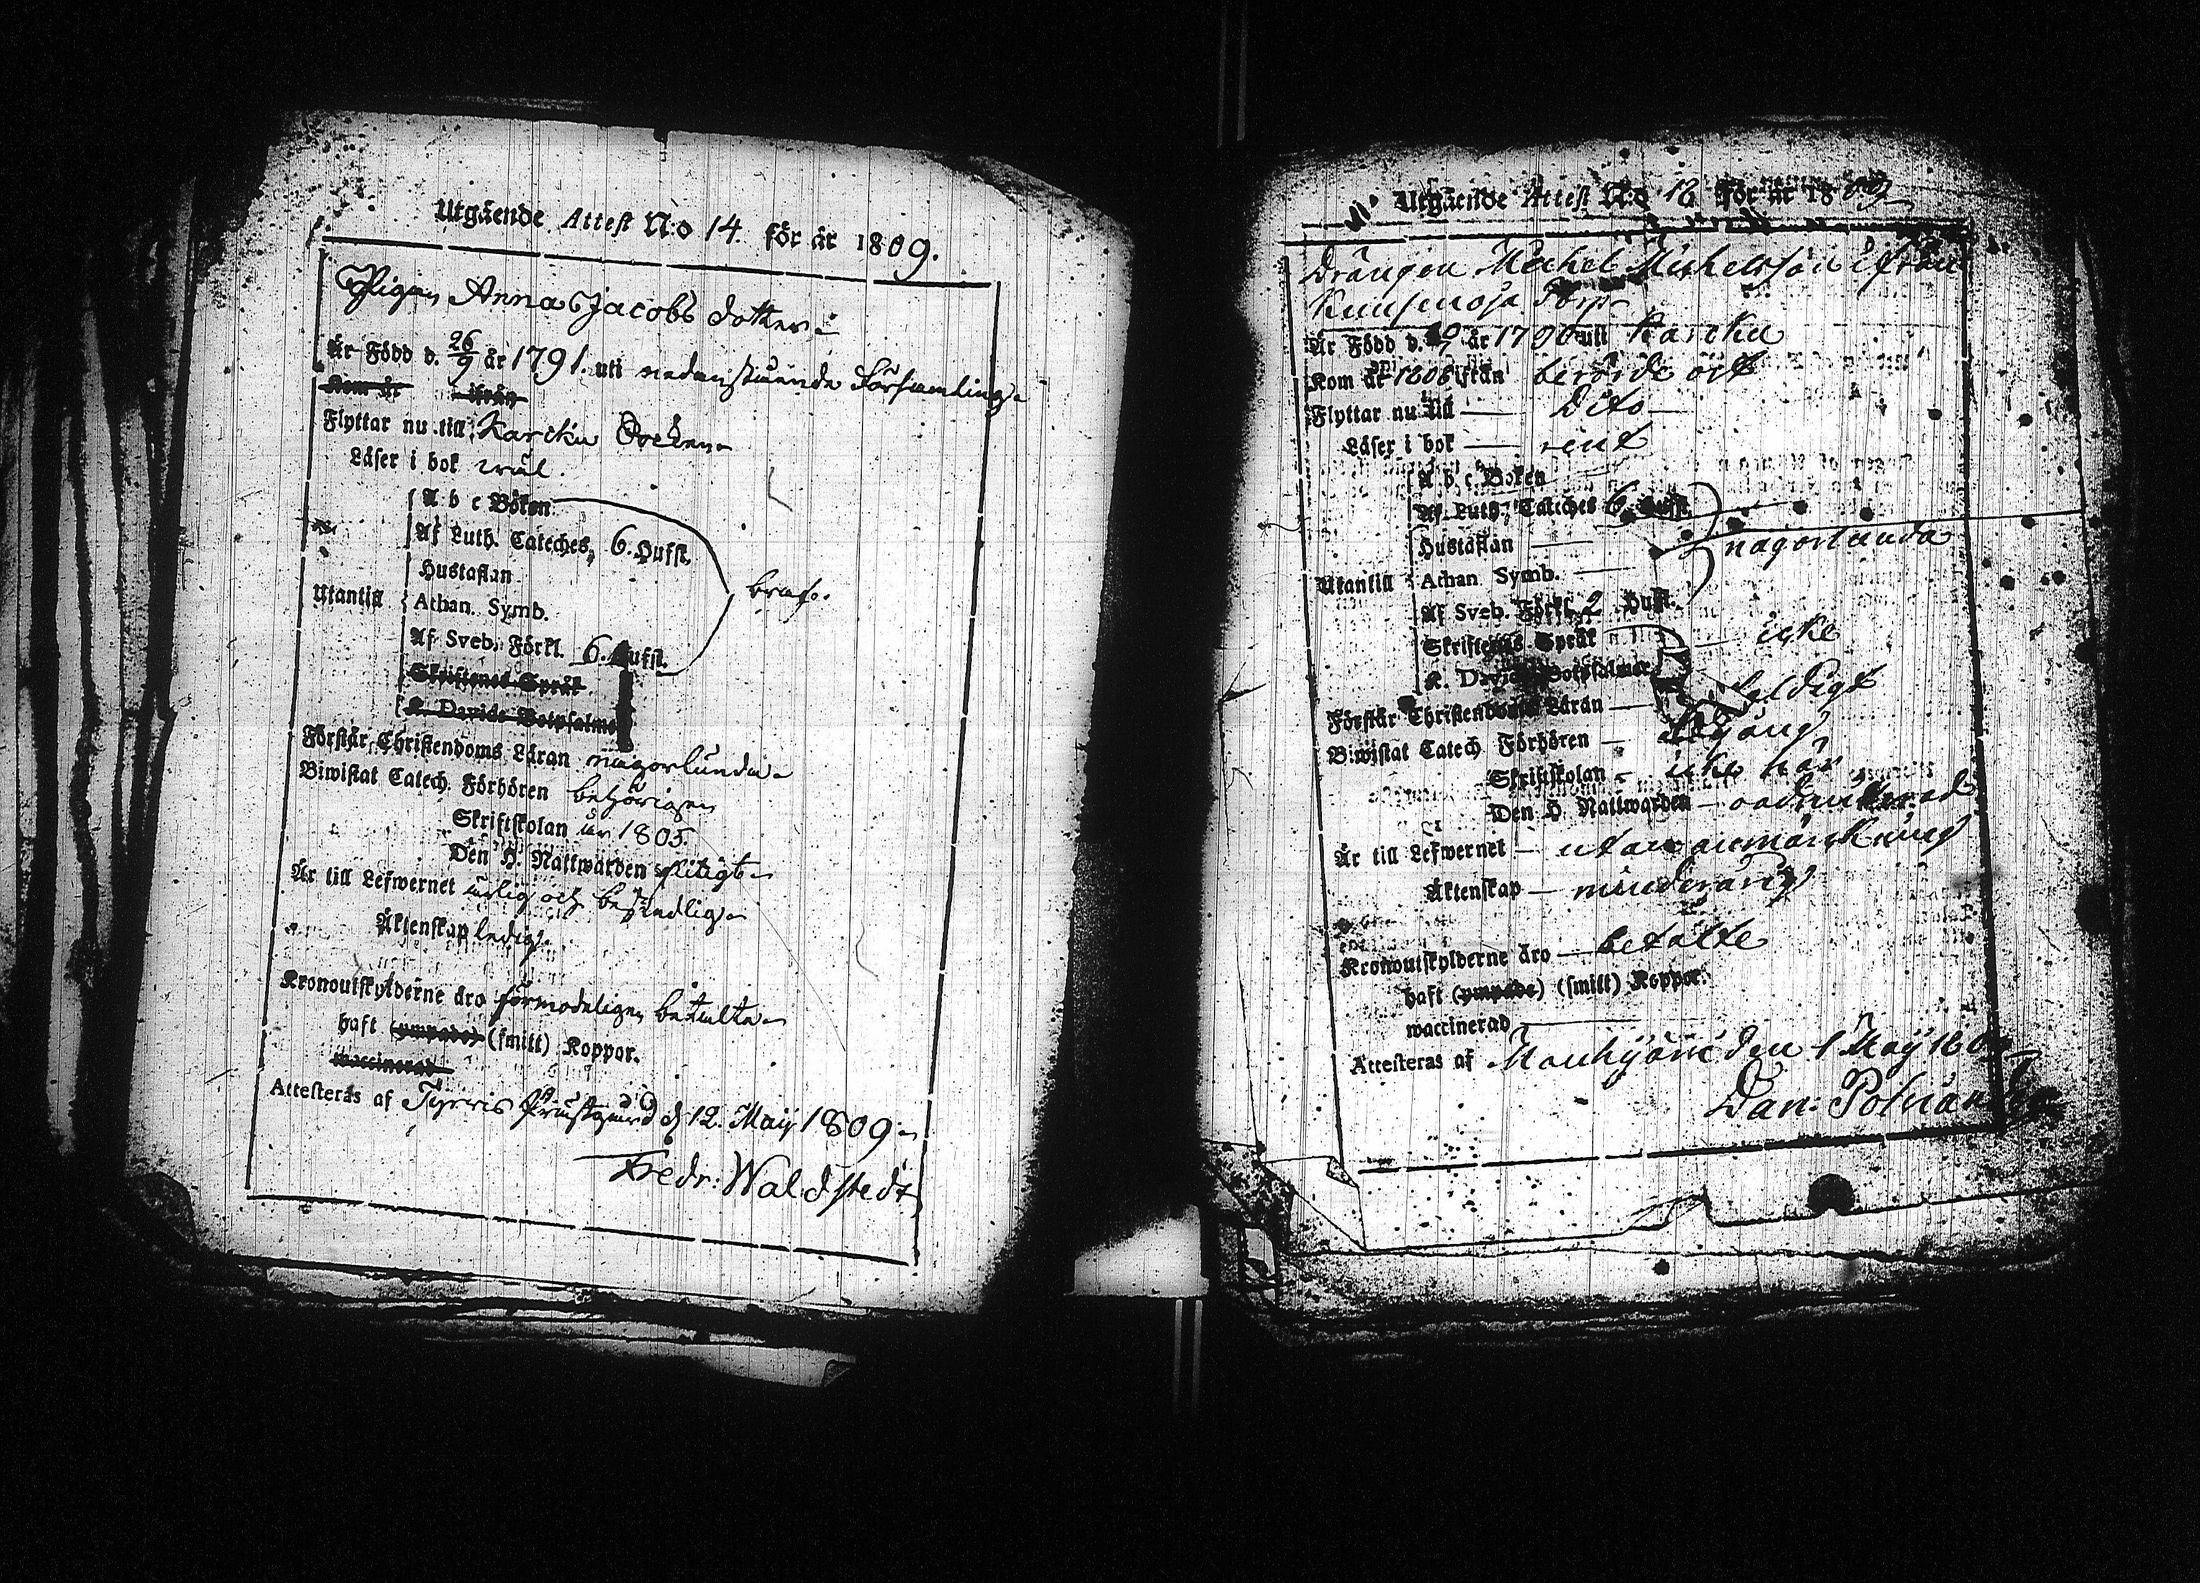 Utgående Attest N:o 14. för år 1809.
Pigan Anna Jacobs dotter
Är Född d. 26/9 år 1791. uti nedanstående Församling
Kom år ifrån
Flyttar nu till Karcku Socken
Läser i bok wäl
A b c Boken
Af Luth. Cateches, 6. Hufst.
Hustaflan
braf.
Utantill
Athan. Symb.
Af Sveb. Förkl. 6. Hufst.
Skriftenes Språk
K. Davids Botpsalmer
Förstår Christendoms Läran någorlunda
Biwistat Catech. Förhören behörigen
Skriftskolan år 1805.
Den H. Nattwarden flitigt
Är till Lefwernet ärlig och beskedlig
Äktenskap ledig
Kronoutskylderne äro förmodeligen betalte
haft (ympade) (smitt) Koppor.
waccinerad
Attesteras af Tyrvis Prästgård d 12. Maij 1809
Fredr: Waldstedt
Utgående Attest N:o 12 för år 1809
Drängen Michel Michelsson ifrån
Torp
Är Född d. 9 år 1790 uti Karcku
Kom år 1808 ifrån berörde ort
Flyttar nu till — Dito
Läser i bok — rent
A b c Boken
Af Luth. Cateches 6 Hufst.
Hustaflan — någorlunda
Utantill
Athan Symb. —
Af Sveb. Förkl. 2 Hufst.
Skriftenes Språk — icke
K. Davids Botpsalmer
Förstår Christendoms Läran —
Biwistat Catech Förhören —
Skriftskolan — icke här
Den H. Nattwarden — oadmitterad
Är till Lefwernet — utan anmärkning
Äktenskap — minderårig
Kronoutskylderne äro — betalte
haft (ympade) (smitt) Koppor.
waccinerad
Attesteras af Mouhijärvi den 1 Maij
Dan: Polviander